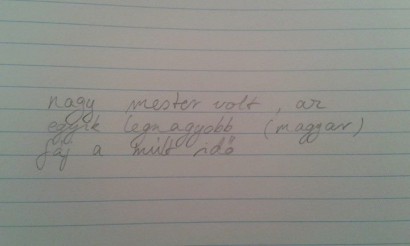 nagy mester volt, az
egyik legnagyobb (magyar)
fáj a múlt idő